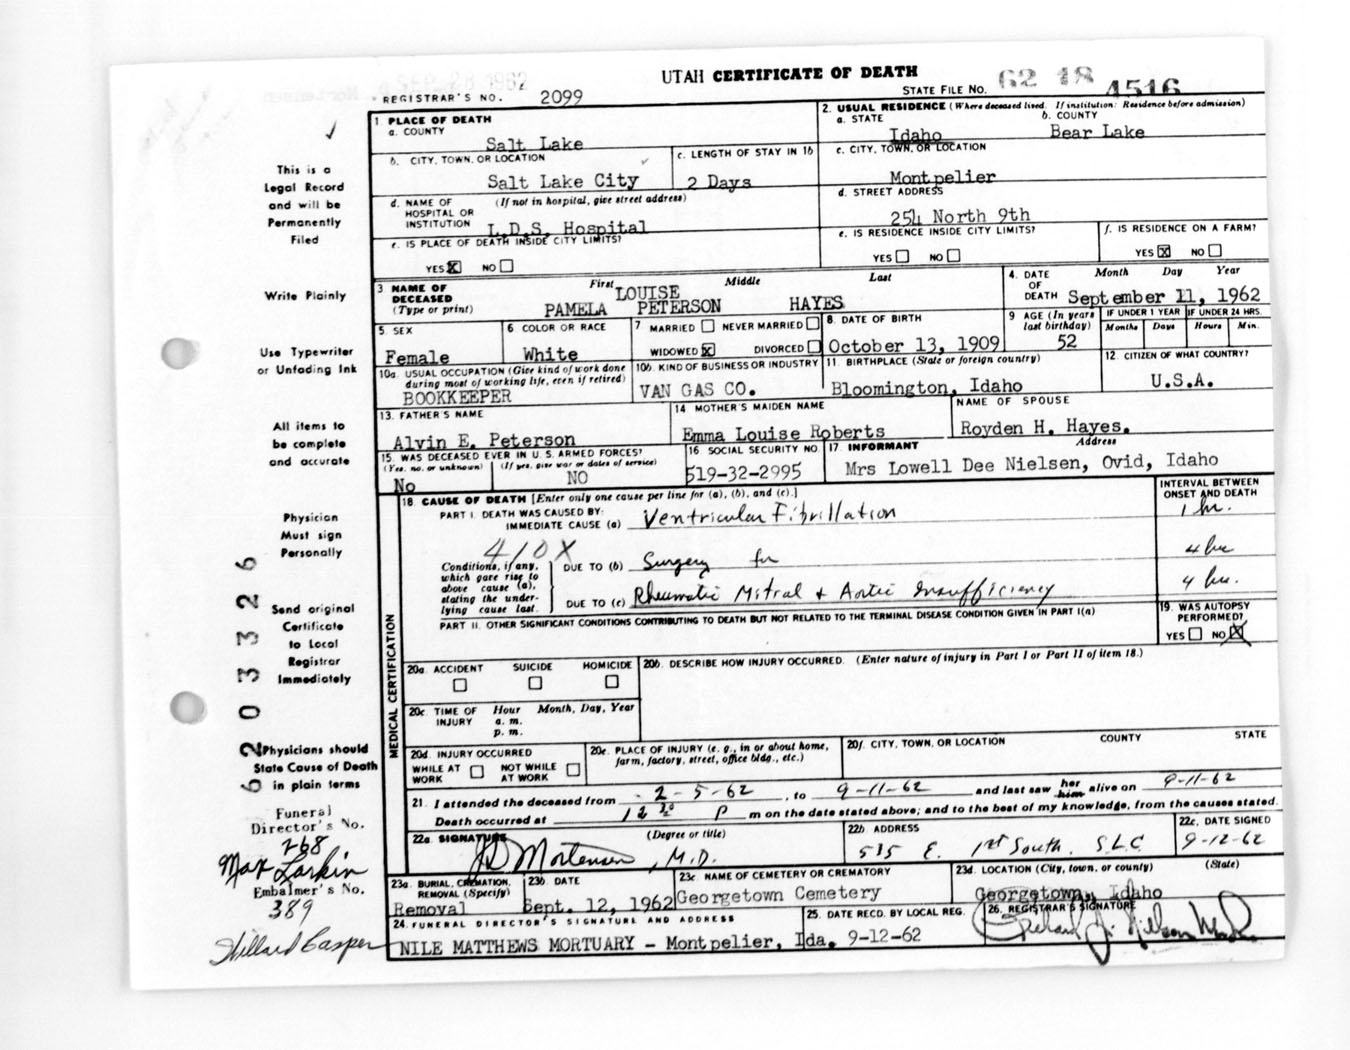 UTAH CERTIFICATE OF DEATH
REGISTRAR'S NO. 2099
STATE FILE NO. 62 18 4516
1 PLACE OF DEATH
a. COUNTY
Salt Lake
2. USUAL RESIDENCE (Where deceased lived. If institution: Residence before admission)
a. STATE b. COUNTY
Idaho Bear Lake
b. CITY, TOWN, OR LOCATION
Salt Lake City
c. LENGTH OF STAY IN 1b
2 Days
c. CITY, TOWN, OR LOCATION
Montpelier
d. NAME OF HOSPITAL OR INSTITUTION (If not in hospital, give street address)
L.D.S. Hospital
d. STREET ADDRESS
254 North 9th
e. IS PLACE OF DEATH INSIDE CITY LIMITS?
YES X NO
e. IS RESIDENCE INSIDE CITY LIMITS?
YES NO
f. IS RESIDENCE ON A FARM?
YES X NO
3 NAME OF DECEASED (Type or print)
First Middle Last
LOUISE
PAMELA PETERSON HAYES
4. DATE OF DEATH Month Day Year
September 11, 1962
5. SEX
Female
6 COLOR OR RACE
White
7 MARRIED NEVER MARRIED
WIDOWED X DIVORCED
8. DATE OF BIRTH
October 13, 1909
9 AGE (In years last birthday)
52
IF UNDER 1 YEAR IF UNDER 24 HRS.
Months Days Hours Min.
10a. USUAL OCCUPATION (Give kind of work done during most of working life, even if retired)
BOOKKEEPER
10b. KIND OF BUSINESS OR INDUSTRY
VAN GAS CO.
11. BIRTHPLACE (State or foreign country)
Bloomington, Idaho
12. CITIZEN OF WHAT COUNTRY?
U.S.A.
13. FATHER'S NAME
Alvin E. Peterson
14 MOTHER'S MAIDEN NAME
Emma Louise Roberts
NAME OF SPOUSE
Royden H. Hayes.
15. WAS DECEASED EVER IN U.S. ARMED FORCES?
(Yes, no, or unknown) (If yes, give war or dates of service)
No NO
16. SOCIAL SECURITY NO.
519-32-2995
17. INFORMANT Address
Mrs Lowell Dee Nielsen, Ovid, Idaho
18 CAUSE OF DEATH [Enter only one cause per line for (a), (b), and (c).]
INTERVAL BETWEEN ONSET AND DEATH
PART I. DEATH WAS CAUSED BY:
IMMEDIATE CAUSE (a) Ventricular Fibrillation 1 hr.
410X
Conditions, if any, which gave rise to above cause (a), stating the underlying cause last.
DUE TO (b) Surgery for 4 hrs
DUE TO (c) Rheumatic Mitral & Aortic Insufficiency 4 hrs.
PART II. OTHER SIGNIFICANT CONDITIONS CONTRIBUTING TO DEATH BUT NOT RELATED TO THE TERMINAL DISEASE CONDITION GIVEN IN PART I(a)
19. WAS AUTOPSY PERFORMED?
YES NO X
MEDICAL CERTIFICATION
20a. ACCIDENT SUICIDE HOMICIDE
20b. DESCRIBE HOW INJURY OCCURRED. (Enter nature of injury in Part I or Part II of item 18.)
20c. TIME OF INJURY Hour Month, Day, Year
a. m.
p. m.
20d. INJURY OCCURRED
WHILE AT WORK NOT WHILE AT WORK
20e. PLACE OF INJURY (e. g., in or about home, farm, factory, street, office bldg., etc.)
20f. CITY, TOWN, OR LOCATION COUNTY STATE
21. I attended the deceased from 2-5-62, to 9-11-62 and last saw her him alive on 9-11-62
Death occurred at 12 30 P m on the date stated above; and to the best of my knowledge, from the causes stated.
22a. SIGNATURE (Degree or title)
JD Mortensen, M.D.
22b ADDRESS
535 E. 1st South. S.L.C
22c. DATE SIGNED
9-12-62
23a. BURIAL, CREMATION, REMOVAL (Specify)
Removal
23b. DATE
Sept. 12, 1962
23c. NAME OF CEMETERY OR CREMATORY
Georgetown Cemetery
23d. LOCATION (City, town, or county) (State)
Georgetown, Idaho
24. FUNERAL DIRECTOR'S SIGNATURE AND ADDRESS
NILE MATTHEWS MORTUARY - Montpelier, Ida.
25. DATE RECD. BY LOCAL REG.
9-12-62
26. REGISTRAR'S SIGNATURE
This is a
Legal Record
and will be
Permanently
Filed
Write Plainly
Use Typewriter
or Unfading Ink
All items to
be complete
and accurate
Physician
Must sign
Personally
Send original
Certificate
to Local
Registrar
Immediately
Physicians should
State Cause of Death
in plain terms
Funeral
Director's No.
268
Max Larkin
Embalmer's No.
389
Willard Casper
62 033326